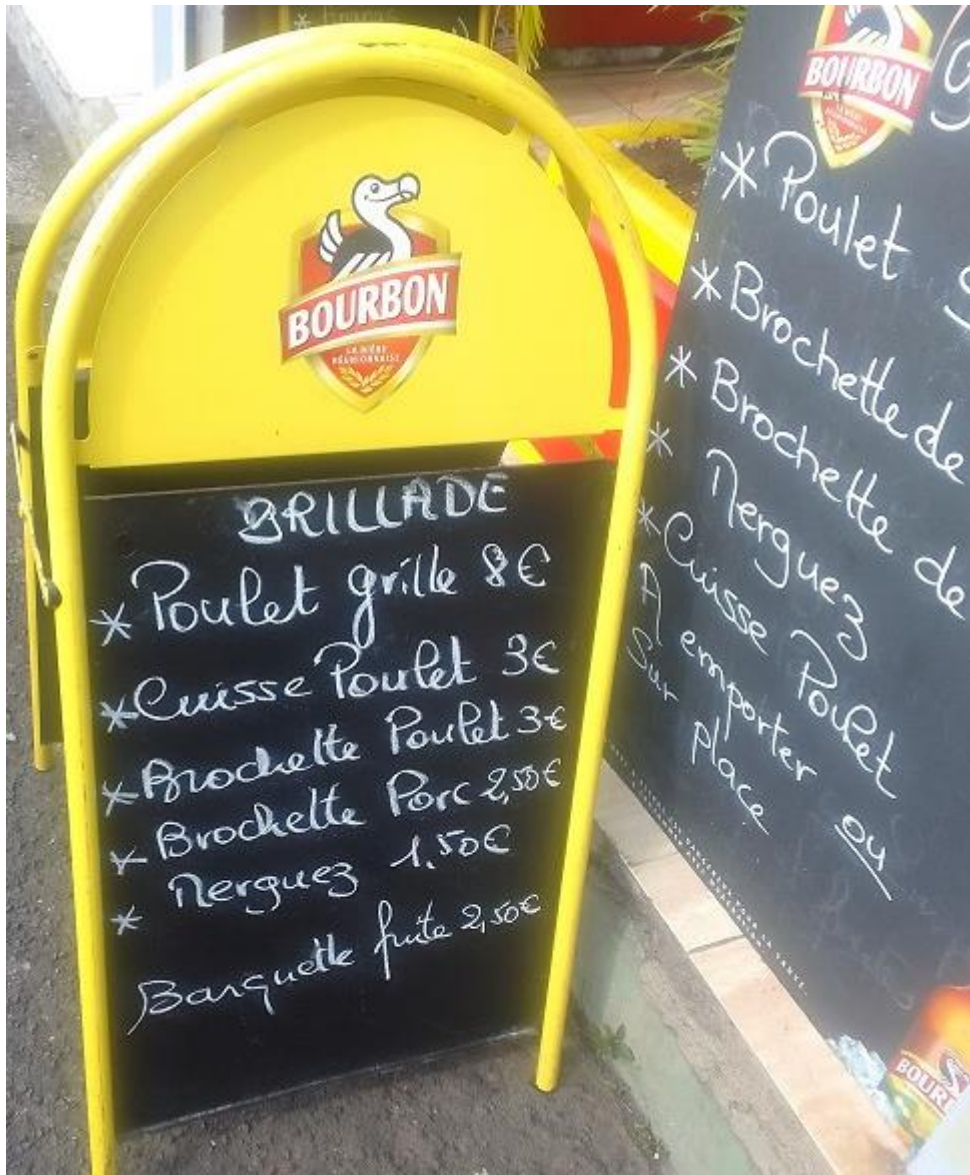 BOURBON
LA BIÈRE
RÉUNIONNAISE
GRILLADE
* Poulet grille 8€
* Cuisse Poulet 3€
* Brochette Poulet 3€
* Brochette Porc 2,50€
* Merguez 1,50€
Barquette frite 2,50€
BOURBON
* Poulet
* Brochette de
* Brochette de
* Merguez
* Cuisse Poulet
A emporter ou
Sur place
BOURB